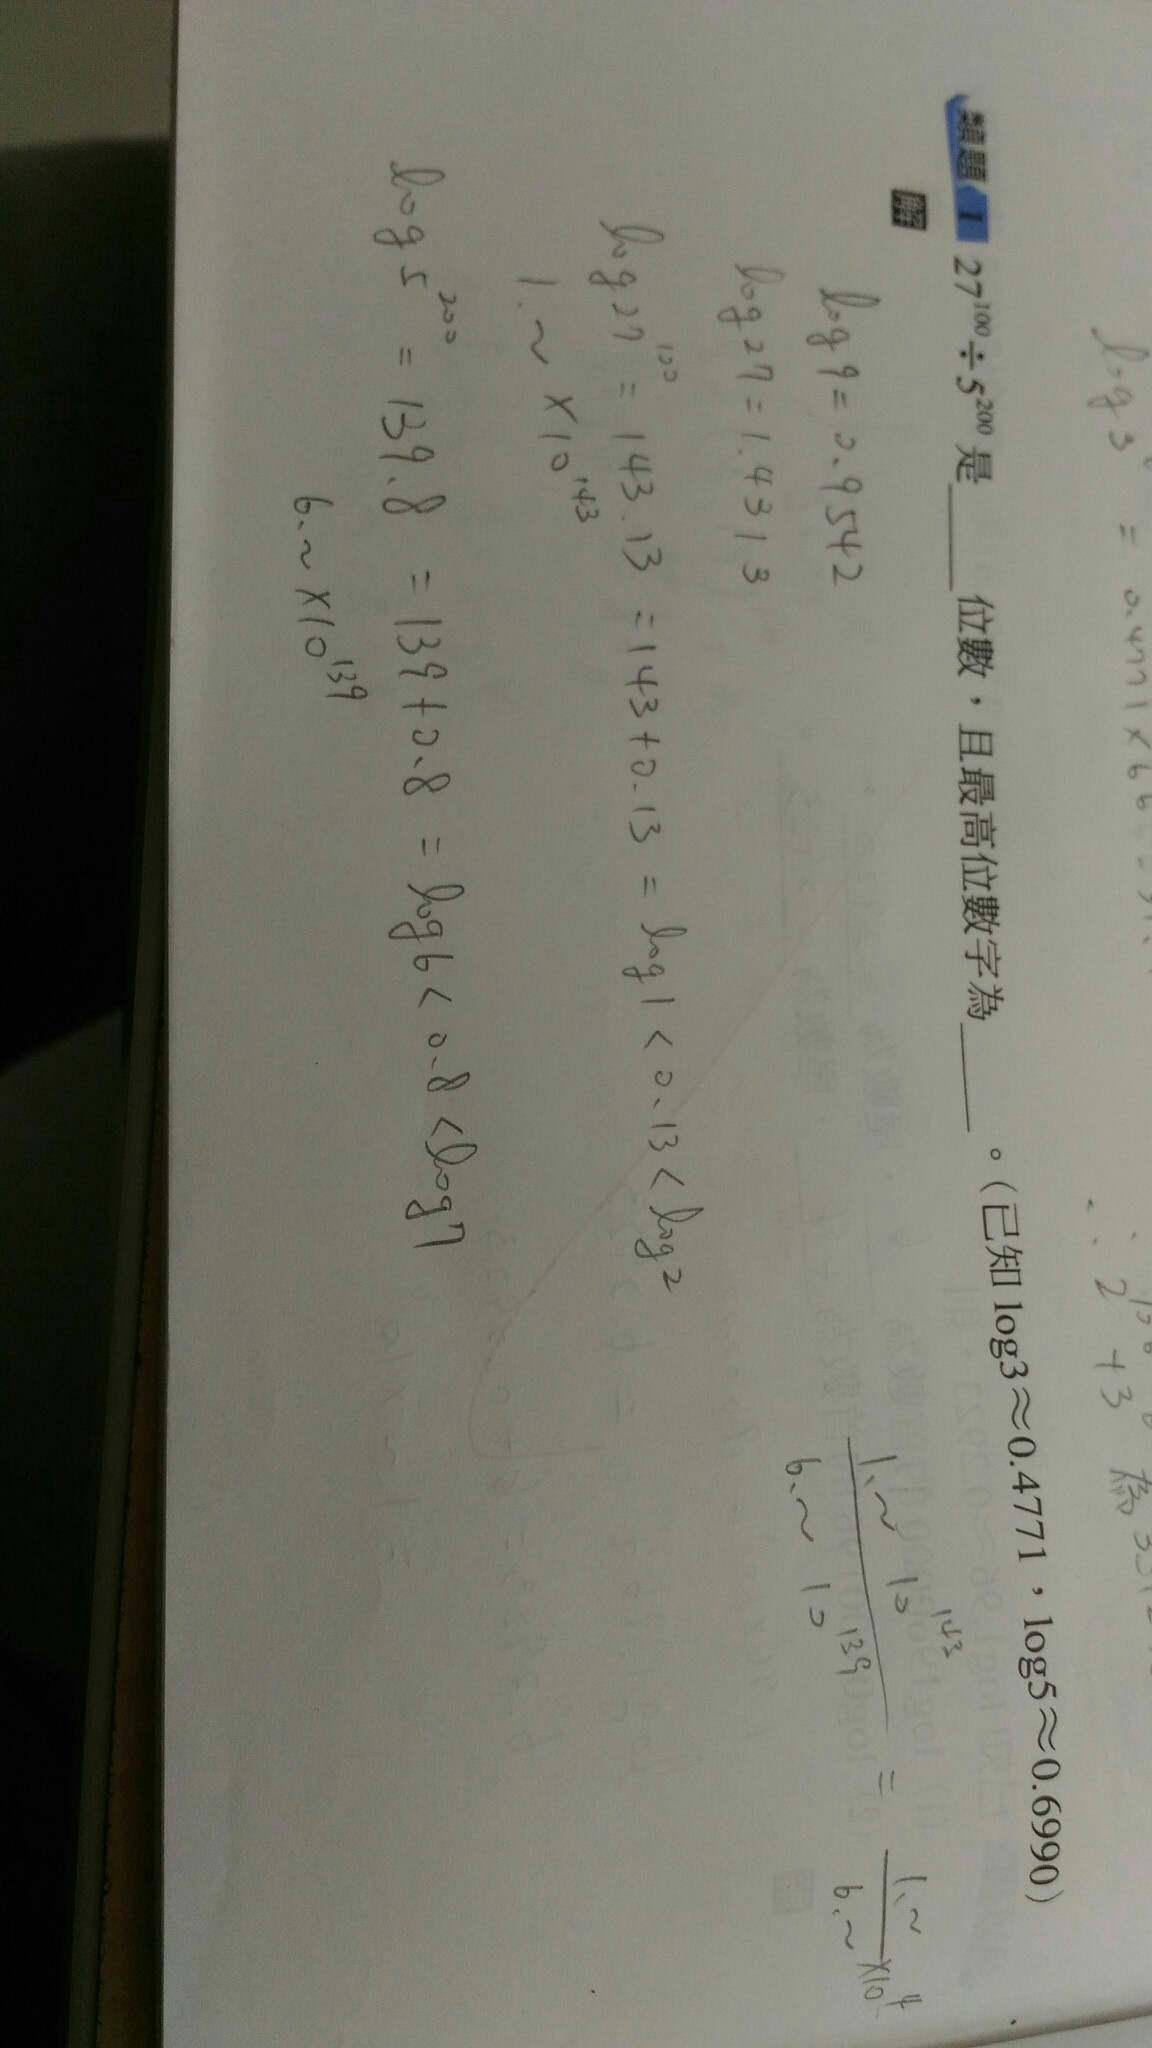 log3 = 0.4771×66
∴ 2 + 3 為
類題 1 27¹⁰⁰÷5²⁰⁰是____位數,且最高位數字為____。(已知 log3≈0.4771,log5≈0.6990)
解
log9=0.9542
log27=1.4313
log27¹⁰⁰=143.13 =143+0.13 = log1<0.13<log2
1.~ ×10¹⁴³
log5²⁰⁰ = 139.8 =139+0.8 = log6<0.8<log7
6.~×10¹³⁹
1.~ 10¹⁴³ / 6.~ 10¹³⁹ = 1.~ / 6.~ ×10⁴